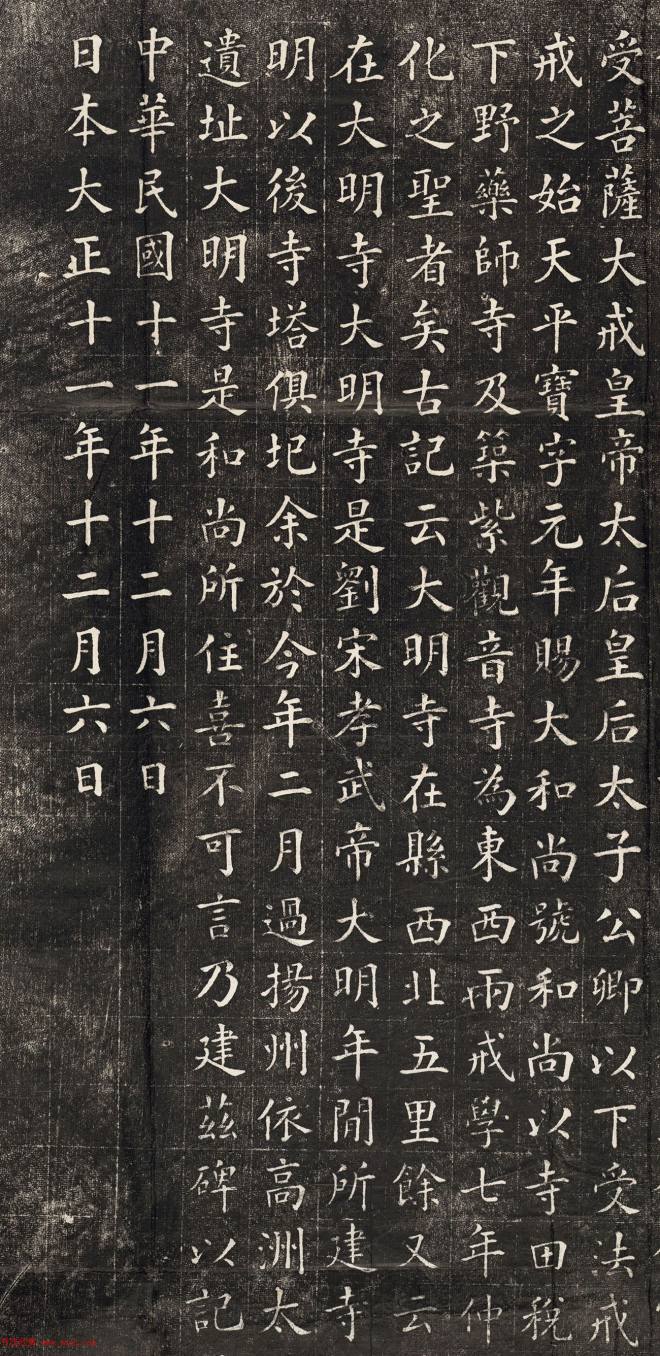 受菩薩大戒皇帝太后皇后太子公卿以下受法戒
戒之始天平寶字元年賜大和尚號和尚以寺田稅
下野藥師寺及築紫觀音寺為東西兩戒學七年仲
化之聖者矣古記云大明寺在縣西北五里餘又云
在大明寺大明寺是劉宋孝武帝大明年間所建寺
明以後寺塔俱圮余於今年二月過揚州依高洲太
遺址大明寺是和尚所住喜不可言乃建茲碑以記
中華民國十一年十二月六日
日本大正十一年十二月六日